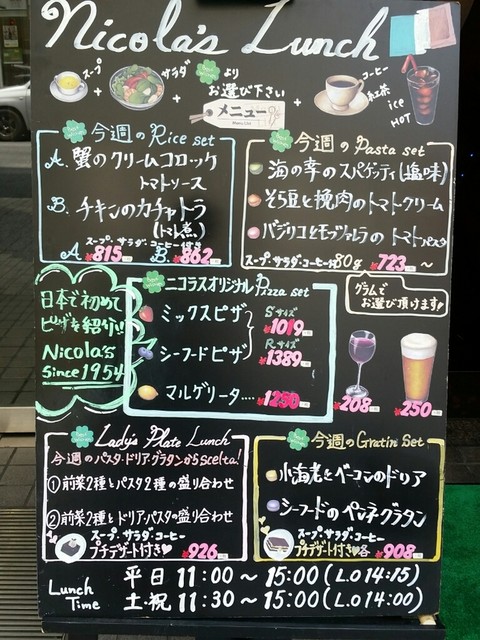 Nicola's Lunch
スープ サラダ より お選び下さい コーヒー 紅茶 ice HOT
+ メニュー +
今週の Rice set
A. 蟹のクリームコロッケ
トマトソース
B. チキンのカチャトラ
(トマト煮)
スープ、サラダ・コーヒー付き
A ¥815 B. ¥862
今週の Pasta set
海の幸のスパゲッティ(塩味)
そら豆と挽肉のトマトクリーム
バジリコとモッツァレラの トマトパスタ
スープ、サラダ・コーヒー付 80g ¥723 〜
グラムで
お選び頂けます!
日本で初めて
ピザを紹介!!
Nicola's
Since 1954
ニコラスオリジナル Pizza set
ミックスピザ
シーフードピザ
Sサイズ
¥1019
Rサイズ
¥1389
マルゲリータ.... ¥1250
¥208 ¥250
Lady's Plate Lunch
今週のパスタ・ドリア・グラタンからscelta!
①前菜2種とパスタ2種の盛り合わせ
②前菜2種とドリア・パスタの盛り合わせ
スープ・サラダ・コーヒー
プチデザート付き ¥926
今週の Gratin Set
小海老とベーコンのドリア
シーフードのペンネグラタン
スープ・サラダ・コーヒー
プチデザート付き 各 ¥908
Lunch Time
平日 11:00〜15:00(L.O 14:15)
土・祝 11:30〜15:00(L.O 14:00)